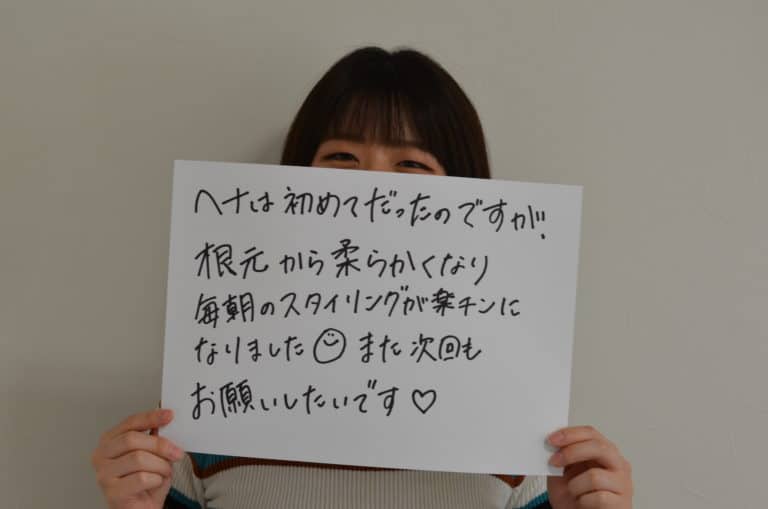 ヘナは初めてだったのですが、
根元から柔らかくなり
毎朝のスタイリングが楽チンに
なりました☺また次回も
お願いしたいです♡